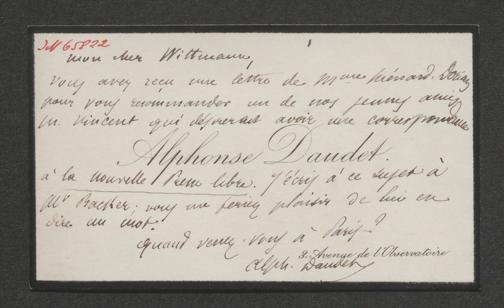 JN 65822
mon cher Wittmann,
vous avez reçu une lettre de Mme Ménard-Dorian
pour vous recommander un de nos jeunes amis
M. Vincent qui désirerait avoir une correspondance
Alphonse Daudet.
à la nouvelle Presse libre. J'écris à ce sujet à
Mr Bacher; vous me feriez plaisir de lui en
dire un mot.
quand venez-vous à Paris?
3. Avenue de l'Observatoire
Alph. Daudet